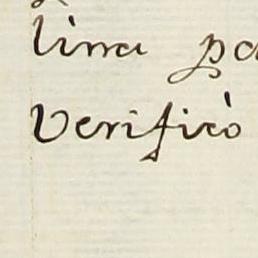 lina pa
Verificò